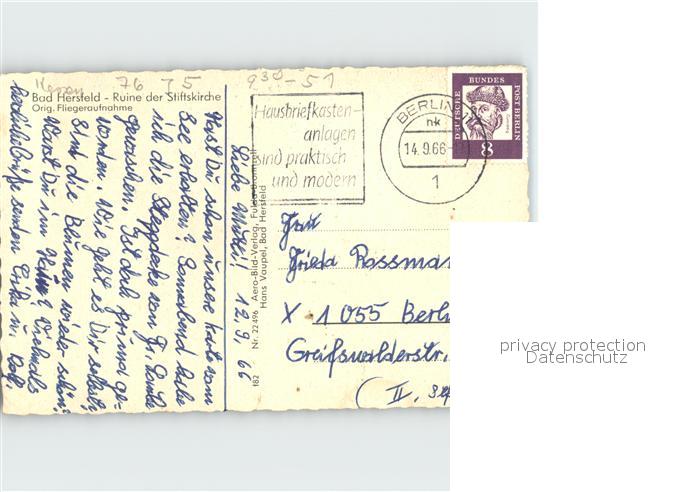 Keren 76 75
930-51
Bad Hersfeld - Ruine der Stiftskirche
Orig. Fliegeraufnahme
Hausbriefkasten-
anlagen
sind praktisch
und modern
BERLIN
nk
14.9.66
1
DEUTSCHE
BUNDES
POST BERLIN
8
Liebe Mutti! 12.9.66
Hast Du schon unsere Karte vom
See erhalten? Sonnabend habe
ich die Steppdecke von Fr.
gewaschen. Ist doch prima ge-
worden. Wie geht es Dir selbst?
Sind die Blumen wieder schön?
Warst Du im Vielmals
senden
Nr. 22496 Aero-Bild-Verlag, Fulda
Hans Vaupel, Bad Hersfeld
182
Frau
Frieda Rossma
X 1055 Berli
Greifswalderstr.
( II,
privacy protection
Datenschutz